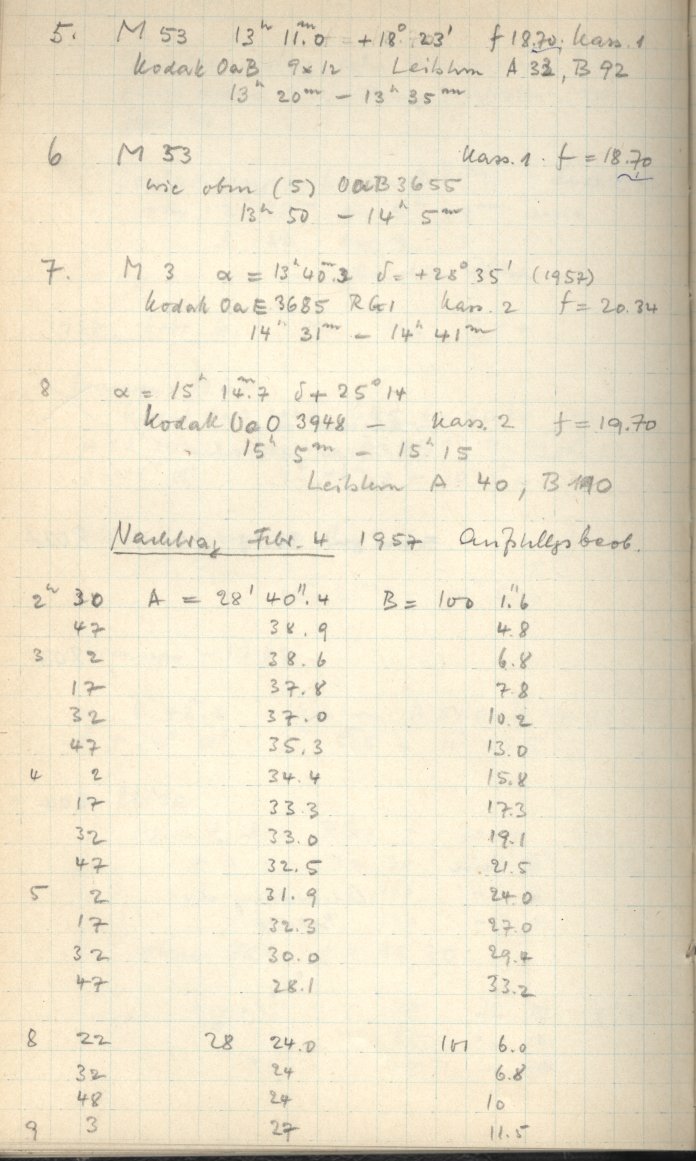 5. M 53 13ʰ 11ᵐ.0 +18° 23' f 18.70. Kass. 1
Kodak OaB 9x12 Leitstern A 32, B 92
13ʰ 20ᵐ – 13ʰ 35ᵐ
6 M 53 Kass. 1. f = 18.70
wie oben (5) OaB 3655
13ʰ 50 – 14ʰ 5ᵐ
7. M 3 α = 13ʰ 40ᵐ.3 δ = +28° 35' (1957)
Kodak OaE 3685 RG1 Kass. 2 f = 20.34
14ʰ 31ᵐ – 14ʰ 41ᵐ
8 α = 15ʰ 14ᵐ.7 δ + 25° 14
Kodak OaO 3948 – Kass. 2 f = 19.70
15ʰ 5ᵐ – 15ʰ 15
Leitstern A 40, B 110
Nachtrag Febr. 4 1957 Aufstellgsbeob.
2ʰ 30 A = 28' 40".4 B = 100 1".6
47 38.9 4.8
3 2 38.6 6.8
17 37.8 7.8
32 37.0 10.2
47 35.3 13.0
4 2 34.4 15.8
17 33.3 17.3
32 33.0 19.1
47 32.5 21.5
5 2 31.9 24.0
17 32.3 27.0
32 30.0 29.4
47 28.1 33.2
8 22 28 24.0 101 6.0
32 24 6.8
48 24 10
9 3 27 11.5